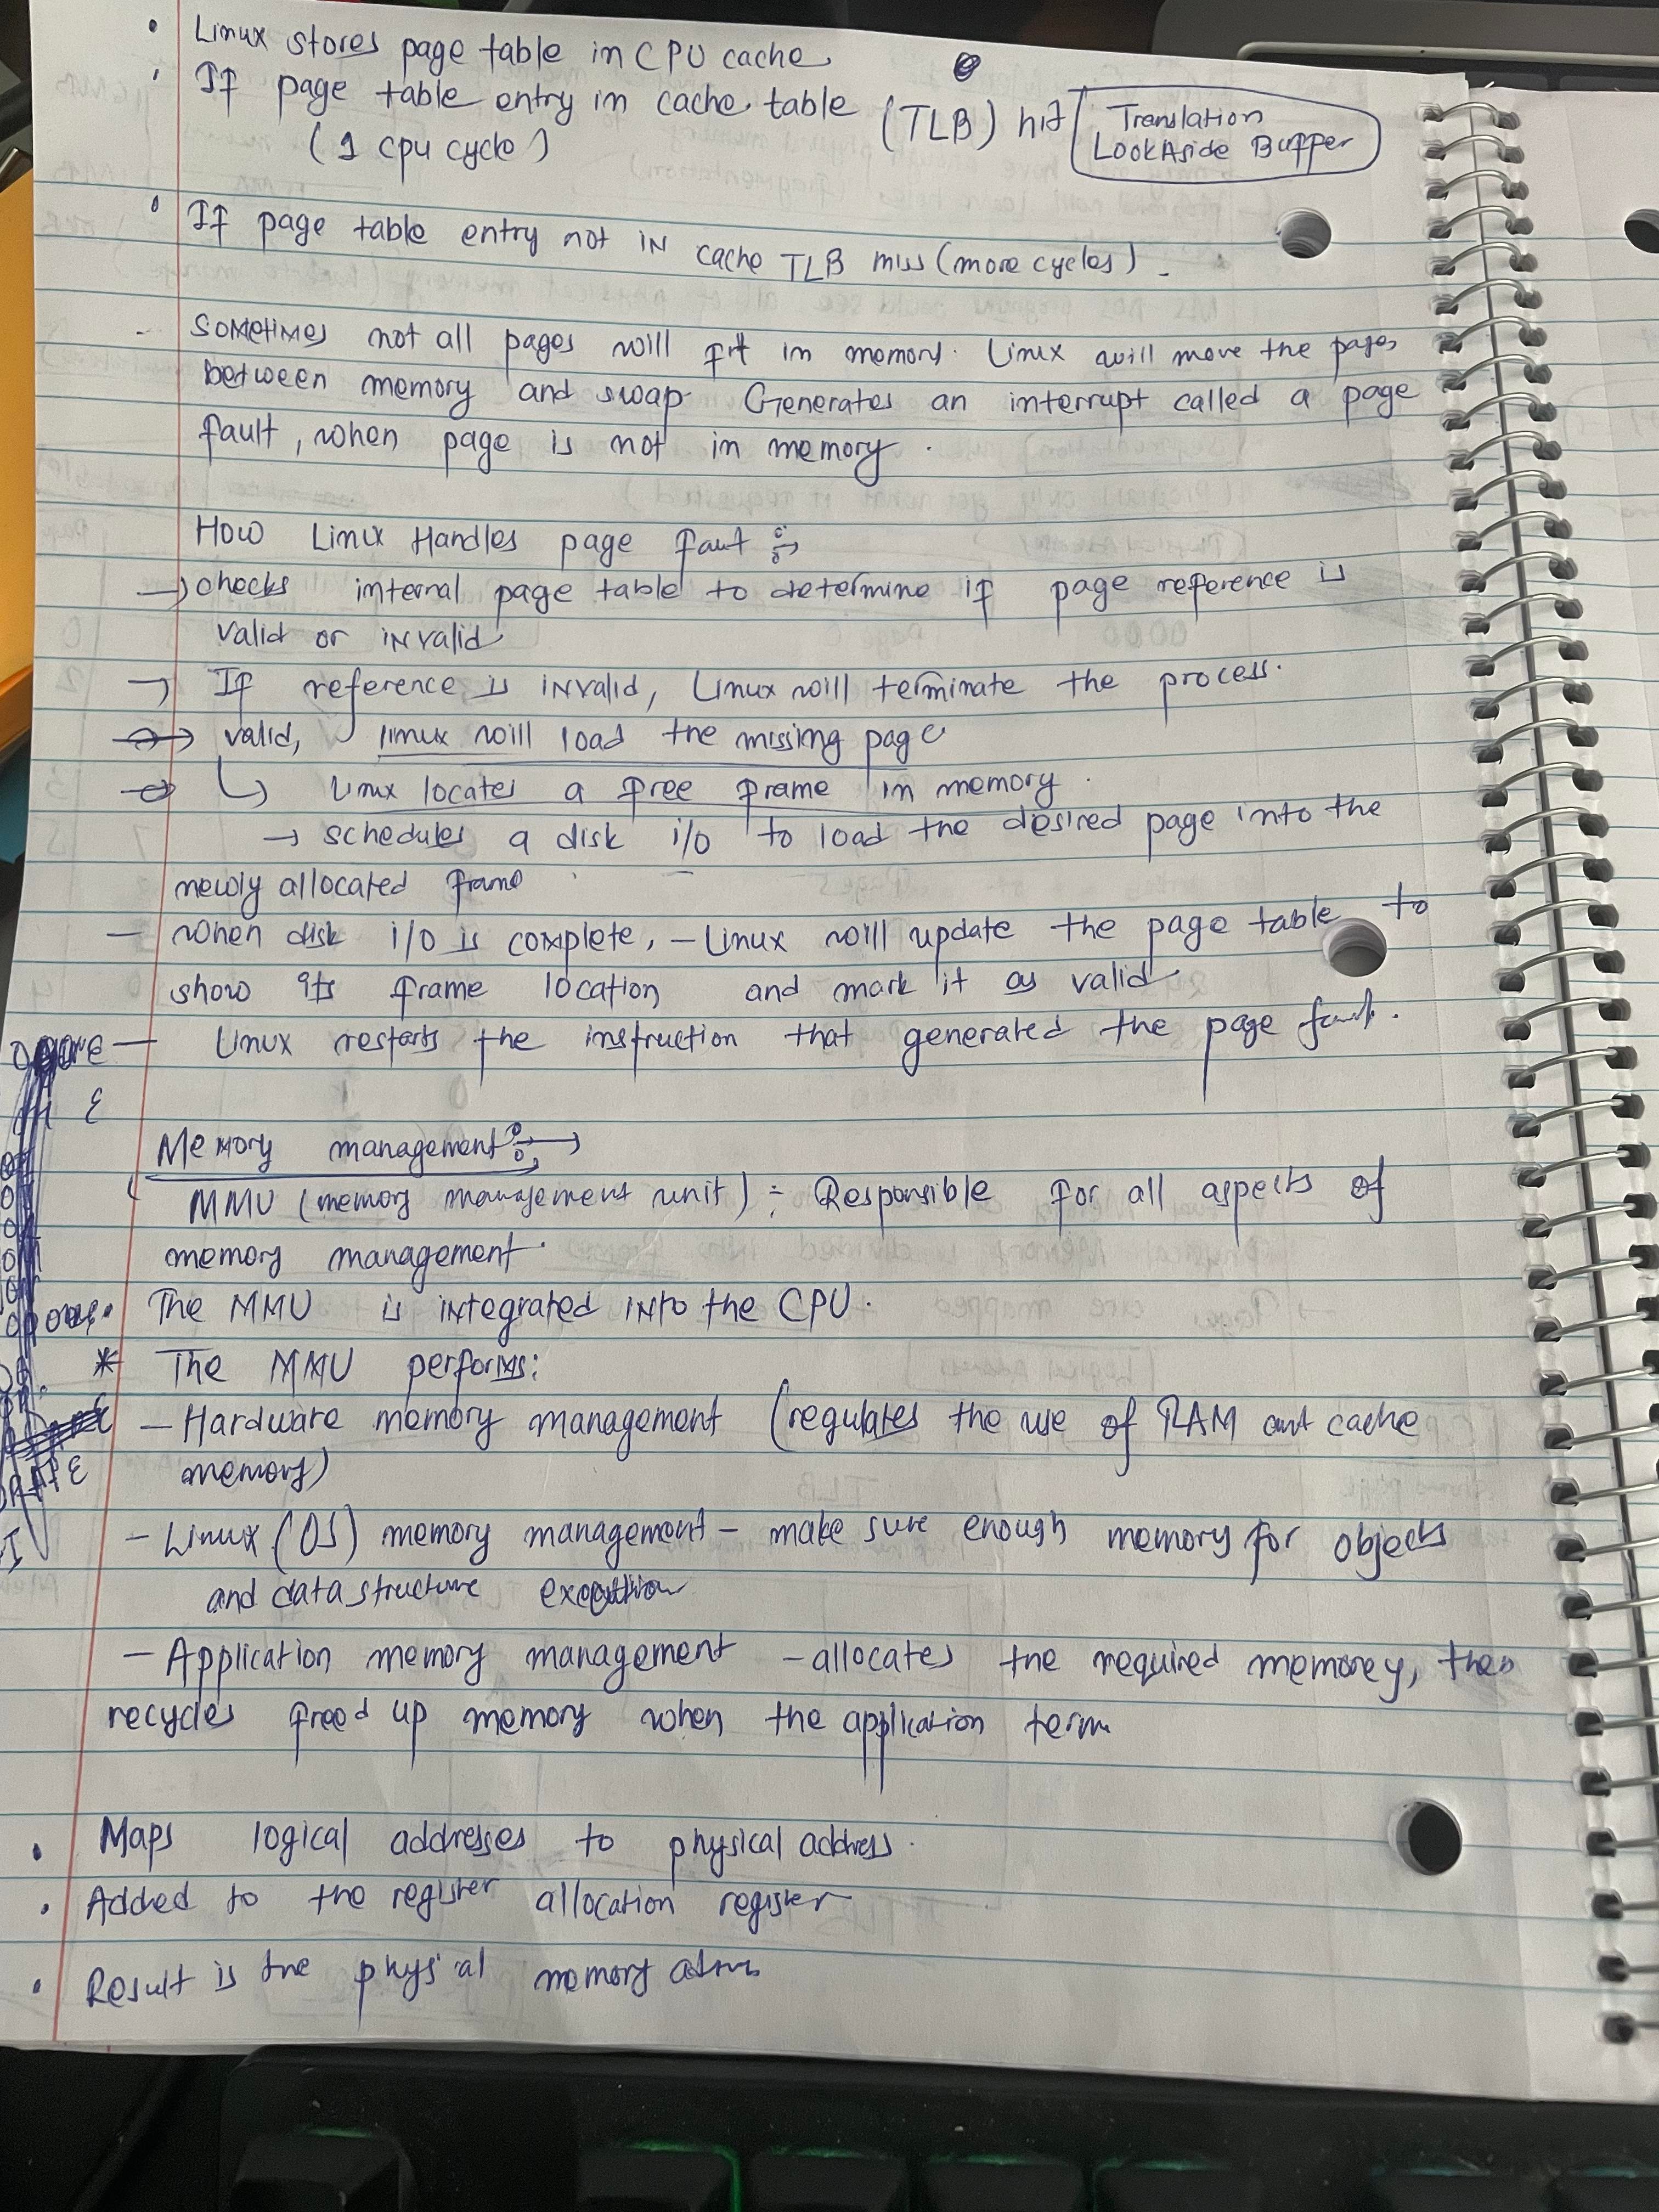 • Linux stores page table in CPU cache
• If page table entry in cache table (TLB) hit
Translation
LookAside Buffer
(1 cpu cycle)
• If page table entry not in cache TLB miss (more cycles).
- sometimes not all pages will fit in memory. Linux will move the pages
between memory and swap. Generates an interrupt called a page
fault, when page is not in memory.
How Linux Handles page faut :→
→ checks internal page table to determine if page reference is
valid or invalid
→ If reference is invalid, Linux will terminate the process.
→ valid, linux will load the missing page
↳ Linux locates a free frame in memory.
→ schedules a disk i/o to load the desired page into the
newly allocated frame
- when disk i/o is complete, - Linux will update the page table to
show its frame location and mark it as valid
- Linux restarts the instruction that generated the page fault.
Memory management :→
MMU (memory management unit) :- Responsible for all aspects of
memory management.
• The MMU is integrated into the CPU.
* The MMU performs:
- Hardware memory management (regulates the use of RAM and cache
memory)
- Linux (OS) memory management - make sure enough memory for objects
and data structure execution
- Application memory management - allocates the required memorey, then
recycles freed up memory when the application term
• Maps logical addresses to physical address.
• Added to the register allocation register
• Result is the physical memory